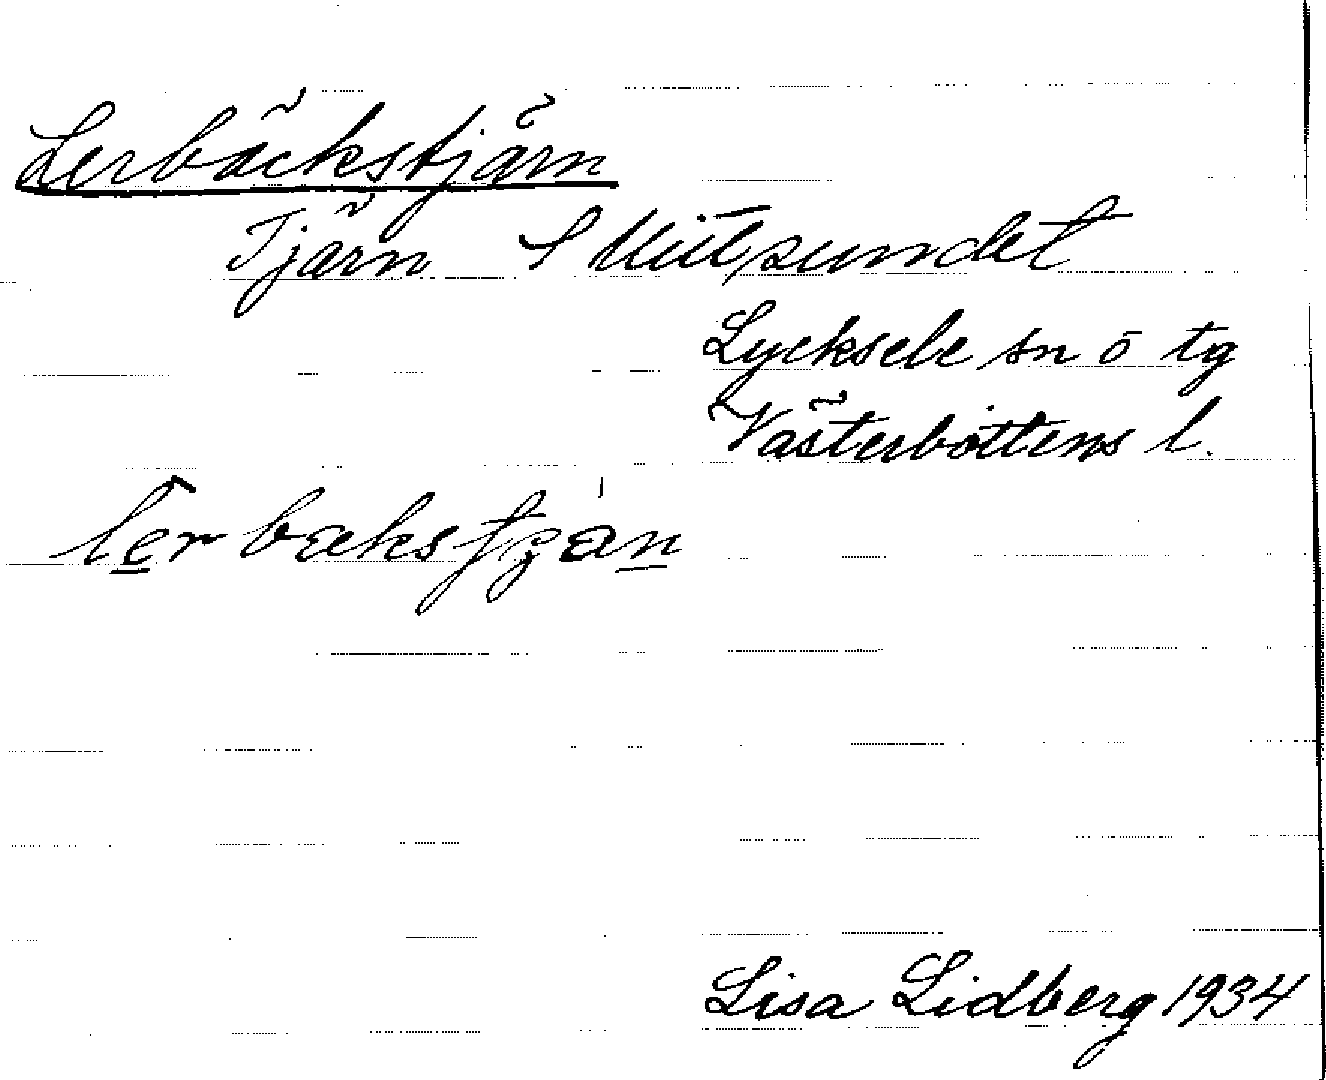 Lerbäckstjärn
Tjärn S Mitsundet
Lycksele sn o tg
Västerbottens l.
Lisa Lidberg 1934